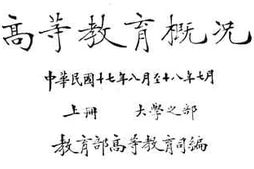 高等教育概况
中華民國十七年八月至十八年七月
上冊 大學之部
教育部高等教育司編